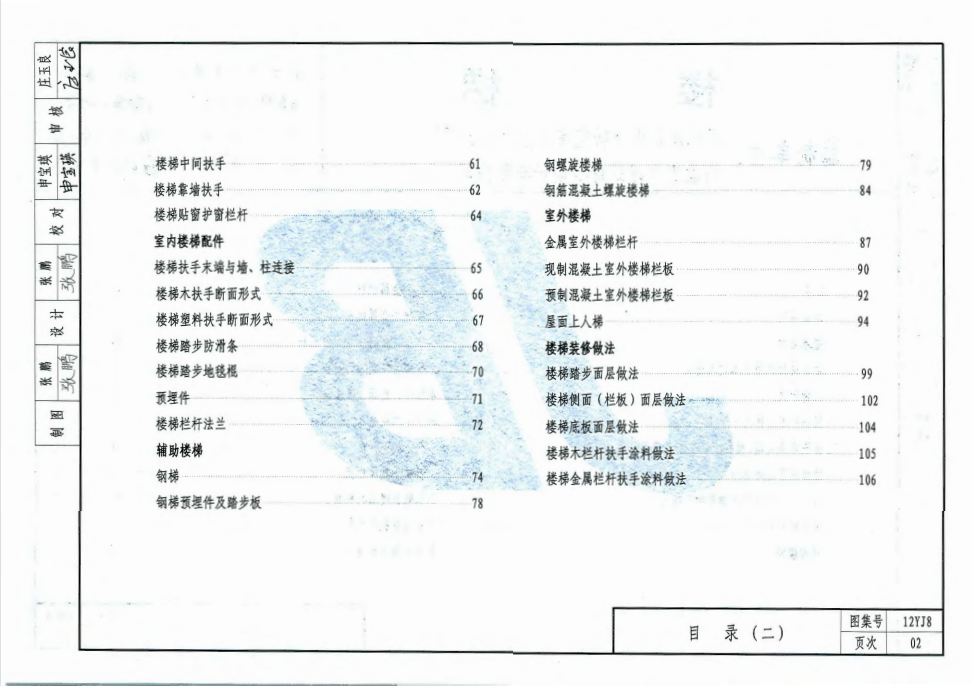 庄玉良
审核
申宝瑛
申宝瑛
校对
张鹏
张鹏
设计
张鹏
张鹏
制图
楼梯中间扶手 61
楼梯靠墙扶手 62
楼梯贴窗护窗栏杆 64
室内楼梯配件
楼梯扶手末端与墙、柱连接 65
楼梯木扶手断面形式 66
楼梯塑料扶手断面形式 67
楼梯踏步防滑条 68
楼梯踏步地毯棍 70
预埋件 71
楼梯栏杆法兰 72
辅助楼梯
钢梯 74
钢梯预埋件及踏步板 78
钢螺旋楼梯 79
钢筋混凝土螺旋楼梯 84
室外楼梯
金属室外楼梯栏杆 87
现制混凝土室外楼梯栏板 90
预制混凝土室外楼梯栏板 92
屋面上人梯 94
楼梯装修做法
楼梯踏步面层做法 99
楼梯侧面（栏板）面层做法 102
楼梯底板面层做法 104
楼梯木栏杆扶手涂料做法 105
楼梯金属栏杆扶手涂料做法 106
目 录（二）
图集号 12YJ8
页次 02